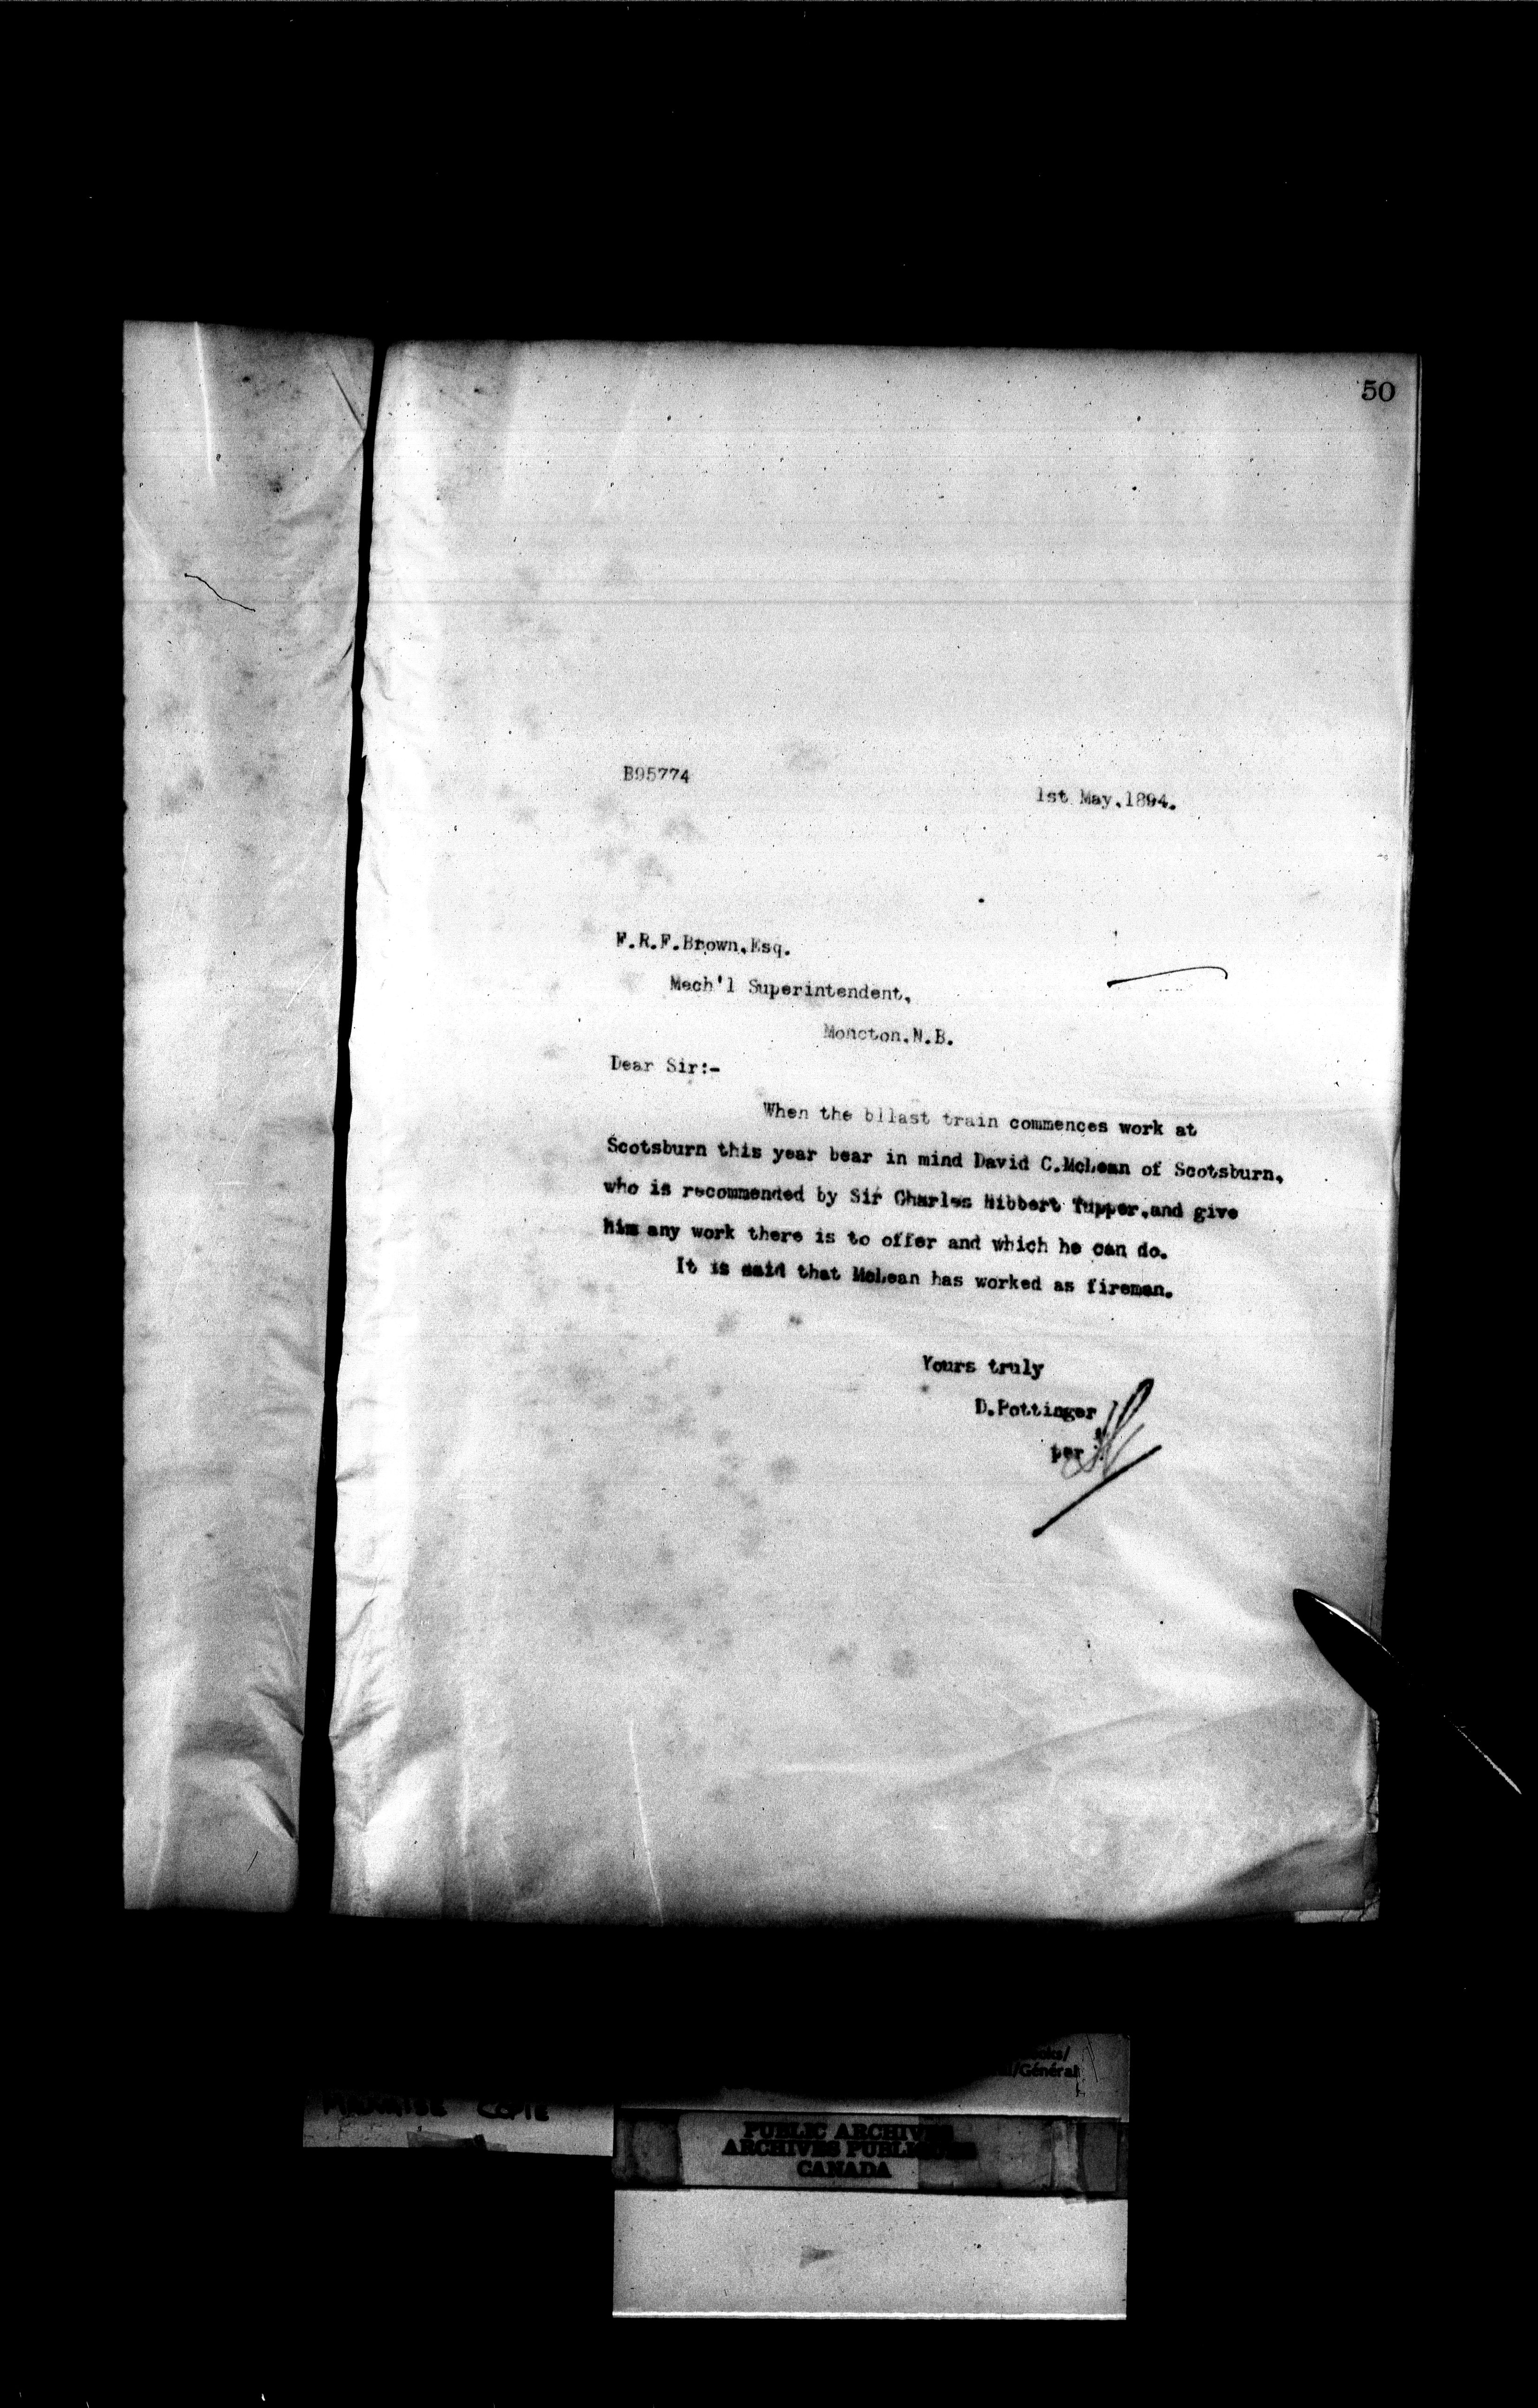 50
B95774
1st May.1894.
F.R.F.Brown.Esq.
Mech'l Superintendent.
Moncton.N.B.
Dear Sir:-
When the bllast train commences work at
Scotsburn this year bear in mind David C.McLean of Scotsburn.
who is recommended by Sir Charles Hibbert Tupper.and give
him any work there is to offer and which he can do.
It is said that McLean has worked as fireman.
Yours truly
D.Pottinger
per
/Général
COPIE
PUBLIC ARCHIVES
ARCHIVES PUBLIQUES
CANADA